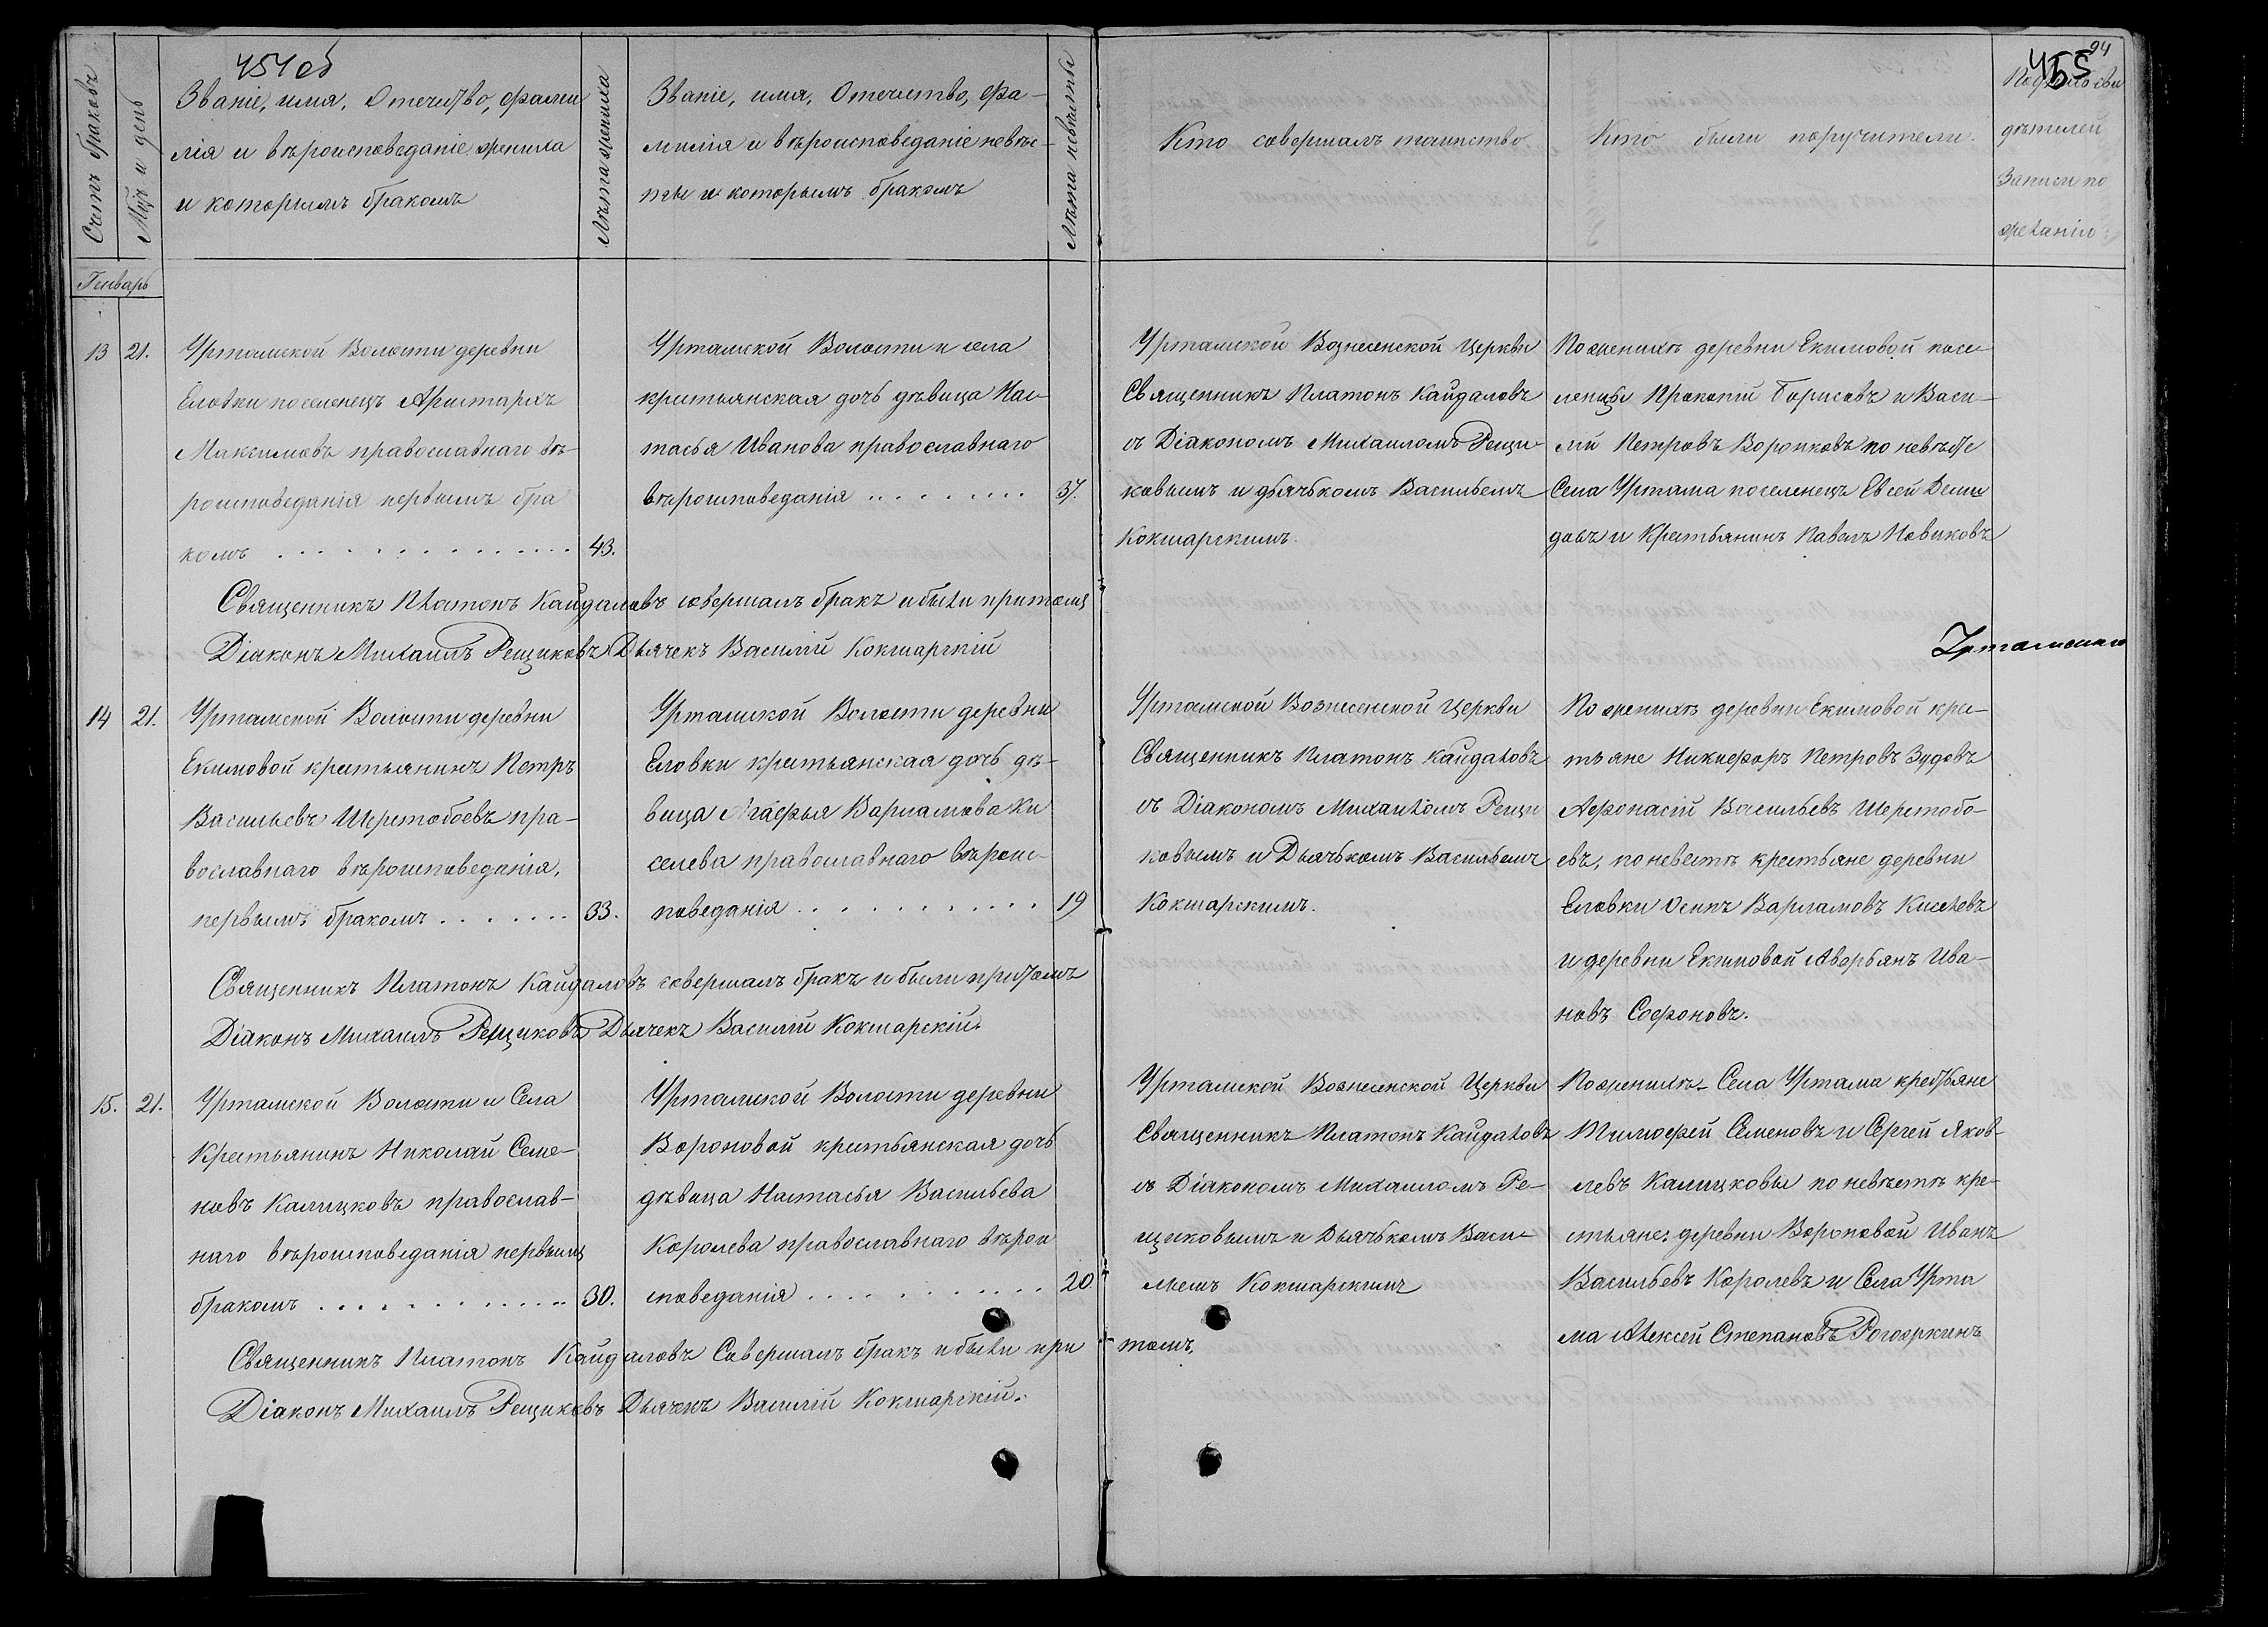 454 об
455
94
Счетъ браковъ
Мцъ и день
Званіе, имя, Отечество, фами
лія и вѣроисповеданіе жениха
и которымъ бракомъ
Лѣта жениха
Званіе, имя, Отечество, фа-
милія и вѣроисповеданіе невѣс-
ты и которымъ бракомъ
Лѣта невѣсты
Кто совершалъ таинство
Кто были поручители.
сви
дѣтелей
Записи по
желанію
Генварь
13
21.
Уртамской Волости деревни
Еловки поселенецъ Аристархъ
Максимовъ православнаго вѣ-
роисповеданія первымъ бра
комъ
43.
Уртамской Волости и села
крестьянская дочь дѣвица Нас
тасья Иванова православнаго
вѣроисповеданія
37.
Уртамской Вознесенской Церкви
Священникъ Платонъ Кайдаловъ
съ Діакономъ Михаиломъ Рещи-
ковымъ и дьячькомъ Васильемъ
Кокшарскимъ.
По женихѣ деревни Екимовой посе-
ленцы Прокопій Борисовъ и Васи-
лій Петровъ Воронковъ по невѣсте
Села Уртама поселенецъ Евсей Деми
довъ и Крестьянинъ Павелъ Новиковъ
Священникъ Платонъ Кайдаловъ совершалъ бракъ и были притомъ
Діаконъ Михаилъ Рещиковъ Дьячекъ Василій Кокшарскій
Уртамскаго
14
21.
Уртамской Волости деревни
Екимовой крестьянинъ Петръ
Васильевъ Шерстобоевъ пра-
вославнаго вѣроисповеданія,
первымъ бракомъ
33.
Уртамской Волости деревни
Еловки крестьянская дочь дѣ-
вица Агафья Варламова Ки
селева православнаго вѣроис-
поведанія
19
Уртамской Вознесенской Церкви
Священникъ Платонъ Кайдаловъ
съ Діакономъ Михаиломъ Рещи
ковымъ и Дьячькомъ Васильемъ
Кокшарскимъ.
По женихѣ деревни Екимовой крес-
тьяне Никифоръ Петровъ Зудовъ
Афонасій Васильевъ Шерстобо-
евъ, по невестѣ крестьяне деревни
Еловки Осипъ Варламовъ Киселевъ
и деревни Екимовой Аверьянъ Ива-
новъ Софоновъ.
Священникъ Платонъ Кайдаловъ совершалъ бракъ и были притомъ
Діаконъ Михаилъ Рещиковъ Дьячекъ Василій Кокшарскій.
15.
21.
Уртамской Волости и Села
Крестьянинъ Николай Семе-
новъ Калицковъ православ-
наго вѣроисповеданія первымъ
бракомъ
30.
Уртамской Волости деревни
Вороновой крестьянская дочь
дѣвица Настасья Васильева
Королева православнаго вѣрои
споведанія
20
Уртамской Вознесенской Церкви
Священникъ Платонъ Кайдаловъ
съ Діакономъ Михаиломъ Ре-
щиковымъ и Дьячькомъ Васи-
льемъ Кокшарскимъ
По женихѣ - Села Уртама крестьяне
Тимофей Семеновъ и Сергей Яков-
левъ Калицковы по невѣстѣ кре-
стьяне: деревни Вороновой Иванъ
Васильевъ Королевъ и Села Урта
ма Алексей Степановъ
Священникъ Платонъ Кайдаловъ Совершалъ бракъ и были при томъ,
Діаконъ Михаилъ Рещиковъ Дьячекъ Василій Кокшарскій.